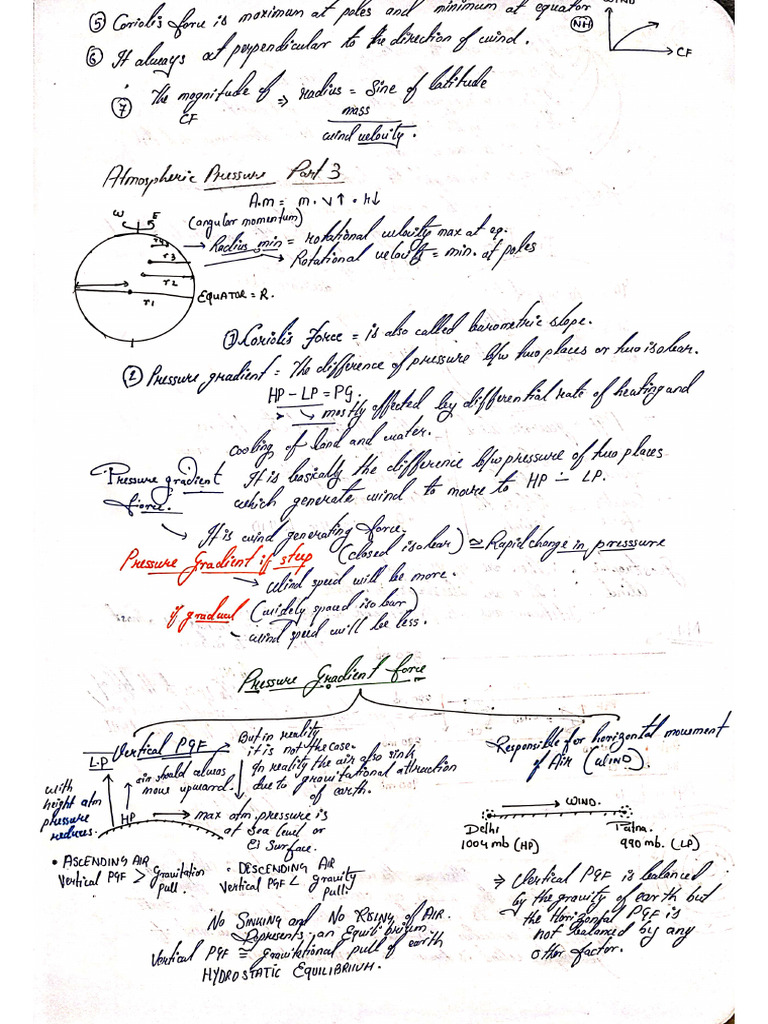 ⑤ Coriolis force is maximum at poles and minimum at equator
NH
WIND
CF
⑥ It always at perpendicular to the direction of wind.
⑦ The magnitude of CF ⇒ radius = Sine of latitude
mass
wind velocity.
Atmospheric Pressure Part 3
A.m = m. v↑ . r↓
(angular momentum)
ω
→ Radius min = rotational velocity max at eq.
Rotational velocity = min. at poles
r3
r2
r1
EQUATOR = R.
① Coriolis Force = is also called barometric slope.
② Pressure gradient = The difference of pressure b/w two places or two isobar.
HP – LP = PG.
→ mostly affected by differential rate of heating and
cooling of land and water.
Pressure gradient force.
It is basically the difference b/w pressure of two places
which generate wind to move to HP – LP.
→ It is wind generating force.
Pressure Gradient if steep (closed isobar) ≅ Rapid change in presssure
→ Wind speed will be more.
if gradual (widely spaced isobar)
- wind speed will be less.
Pressure Gradient force
Vertical PGF
LP
with height atm pressure reduces.
HP
air should always
move upward.
But in reality
it is not the case.
In reality the air also sink
due to gravitational attraction
of earth.
→ max atm. pressure is
at Sea level or
Surface.
Responsible for horizontal movement
of Air (WIND).
WIND.
Delhi
1004 mb (HP)
Patna.
990 mb. (LP)
• ASCENDING AIR
Vertical PGF > Gravitation
pull.
• DESCENDING AIR
Vertical PGF < gravity
pull
NO SINKING and NO RISING of AIR.
Represents an Equilibrium.
Vertical PGF ≅ gravitational pull of earth
HYDROSTATIC EQUILIBRIUM.
⇒ Vertical PGF is balanced
by the gravity of earth but
the Horizontal PGF is
not balanced by any
other factor.